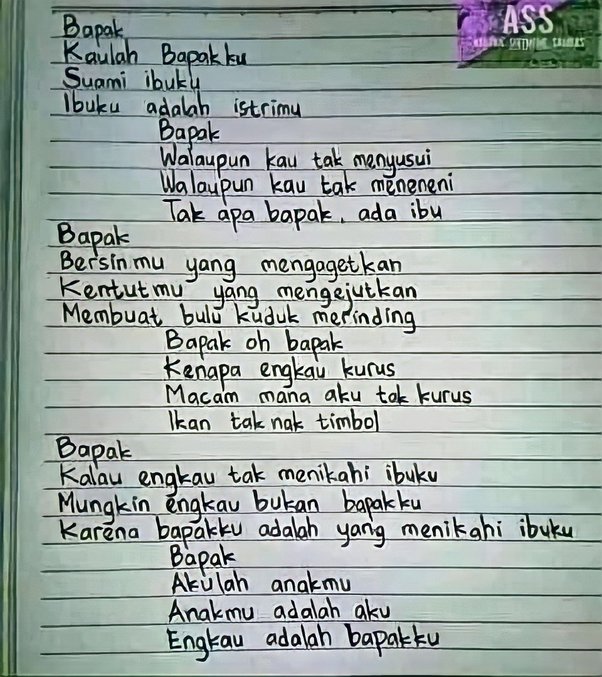 ASS
Bapak
Kaulah Bapakku
Suami ibuku
Ibuku adalah istrimu
Bapak
Walaupun kau tak menyusui
Walaupun kau tak meneneni
Tak apa bapak, ada ibu
Bapak
Bersinmu yang mengagetkan
Kentutmu yang mengejutkan
Membuat bulu kuduk merinding
Bapak oh bapak
Kenapa engkau kurus
Macam mana aku tak kurus
Ikan tak nak timbol
Bapak
Kalau engkau tak menikahi ibuku
Mungkin engkau bukan bapakku
Karena bapakku adalah yang menikahi ibuku
Bapak
Akulah anakmu
Anakmu adalah aku
Engkau adalah bapakku